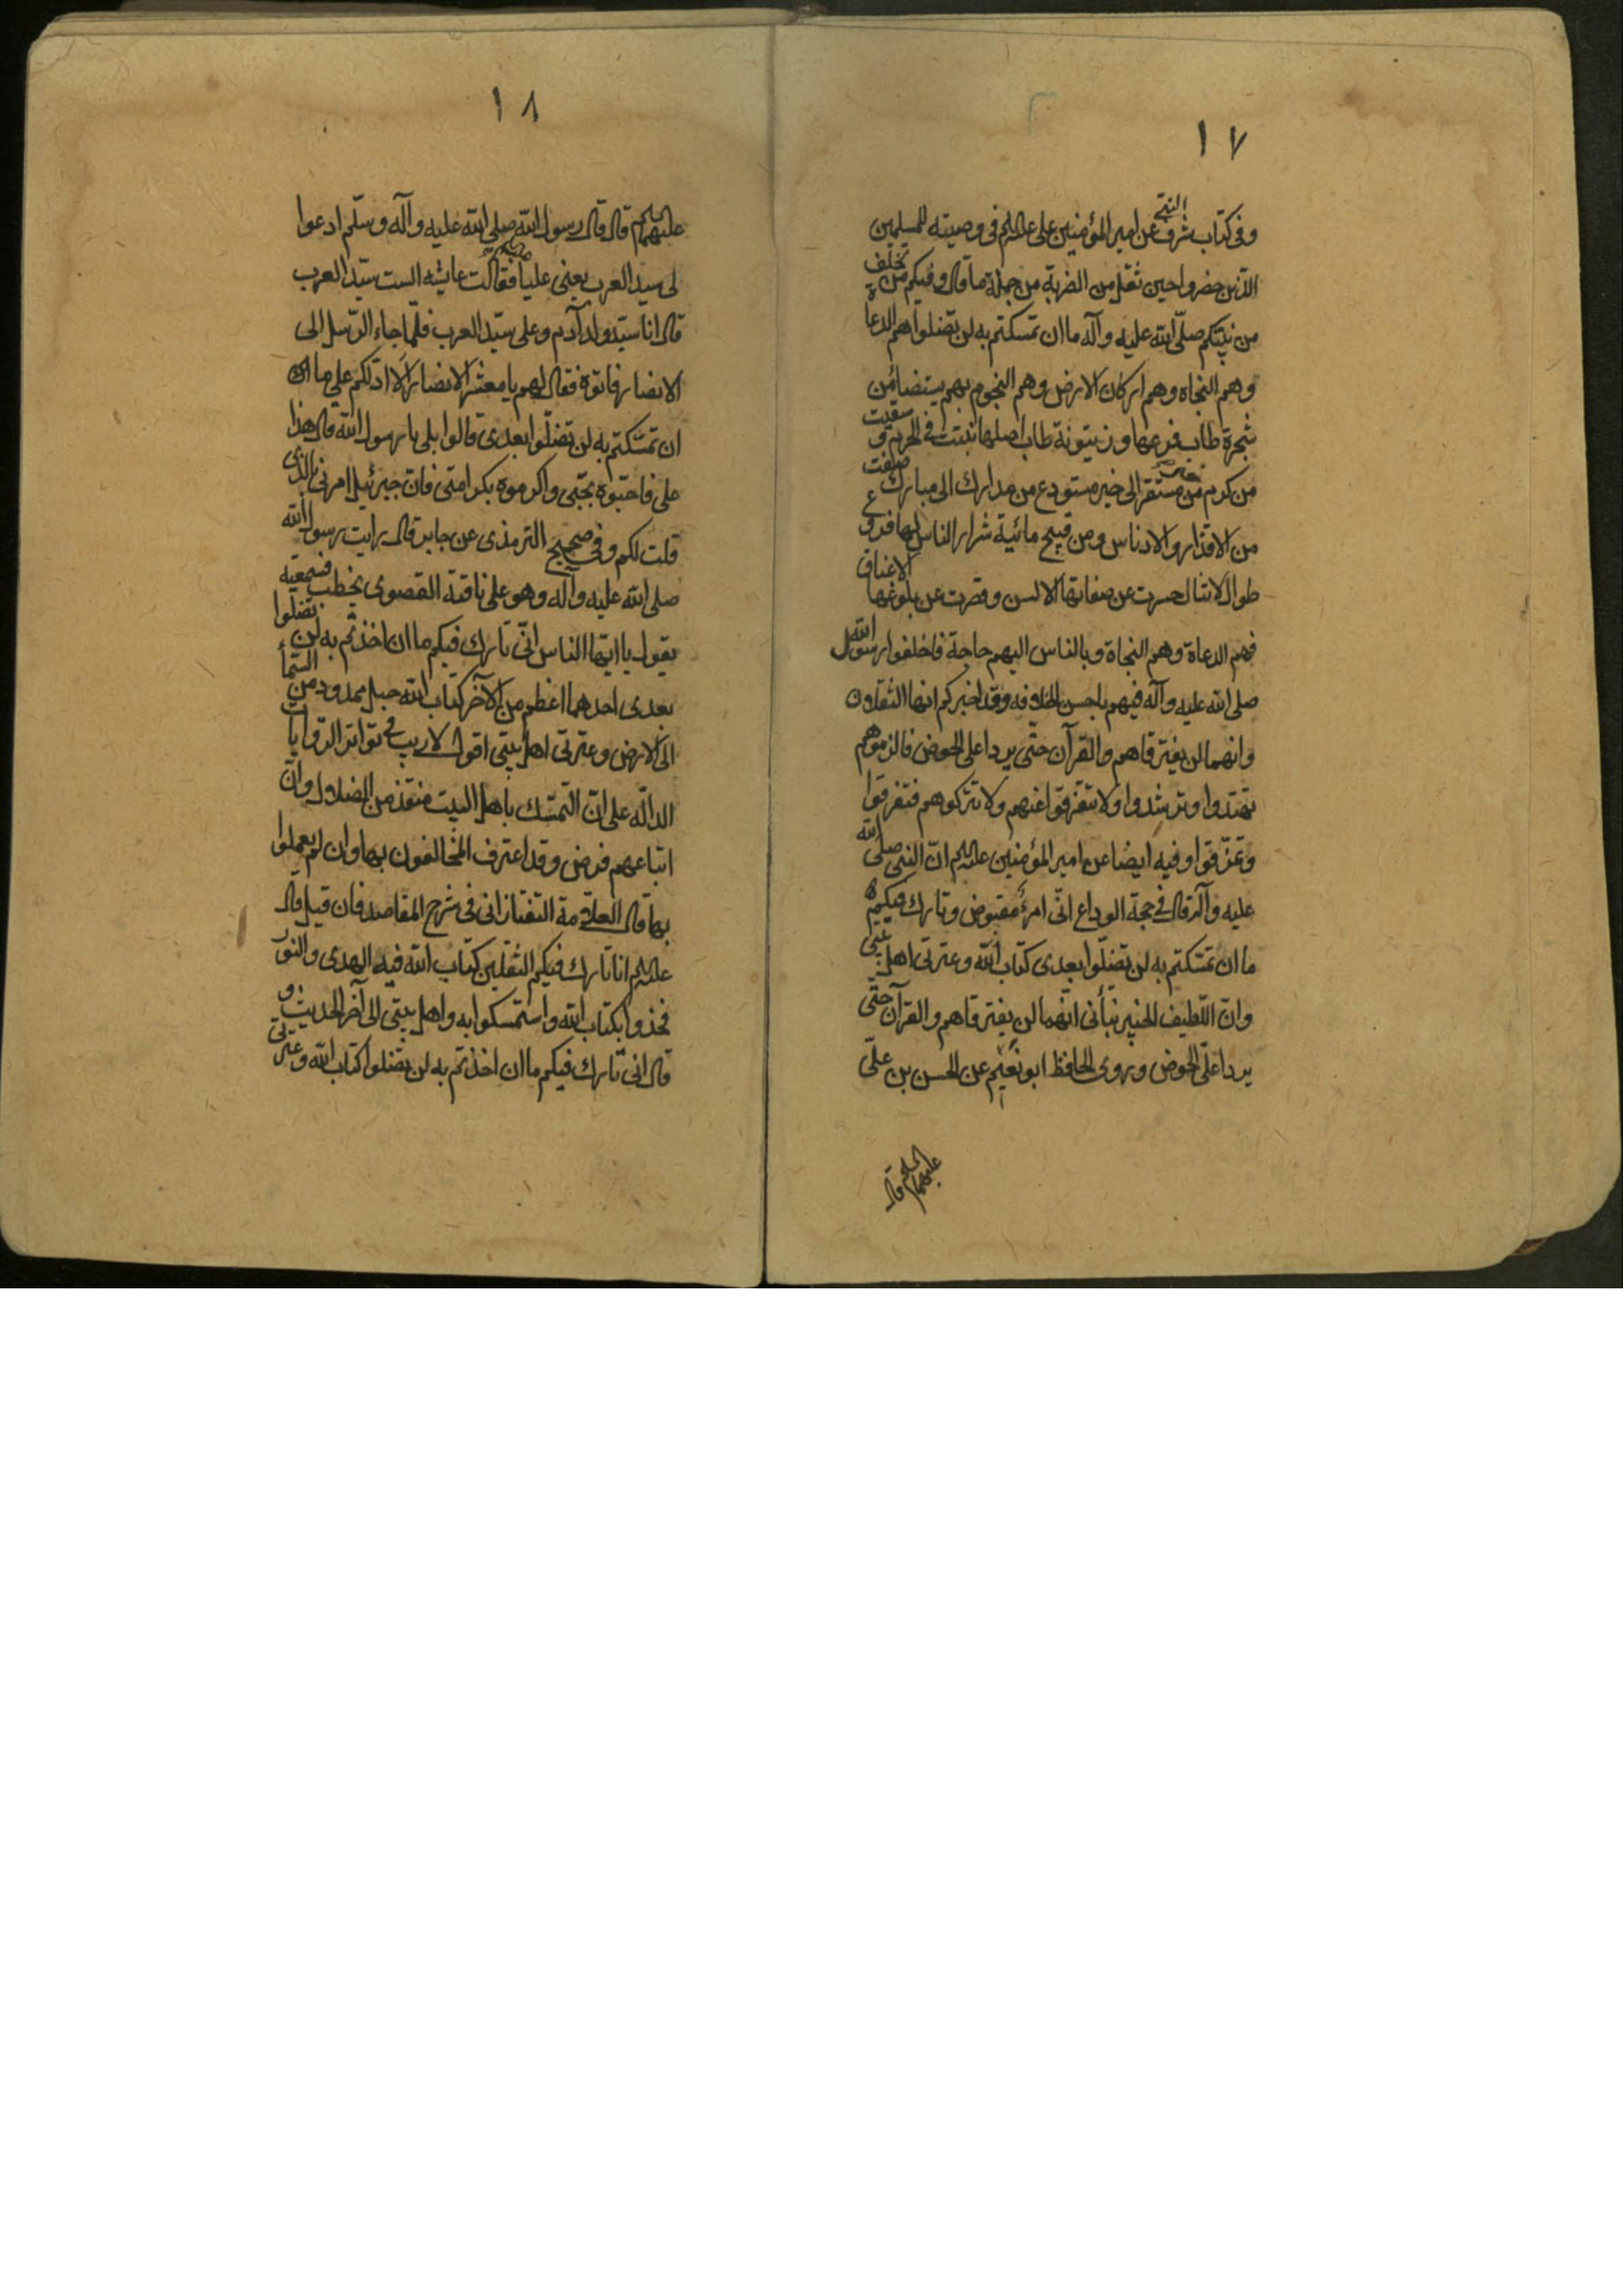 ١٧
وفى كتاب شرف النبى عن امير المؤمنين على عليه السلم فى وصيته للمسلمين
الذين حضروا حين ثقل من الضربة من جملة ما قال وفيكم من تخلف
من نبيكم صلى الله عليه وآله ما ان تمسكتم به لن تضلوا هم الدعاة
وهم النجاة وهم اركان الارض وهم النجوم بهم يستضاء من
شجرة طاب فرعها وزيتونة طاب اصلها نبتت فى الحرم وسقيت
من كرم من خير مستقر الى خير مستودع من مبارك الى مبارك صفت
من الاقذار والادناس ومن قبيح مائية شرار الناس لها فروع
طوال لا تنال حسرت عن صفاتها الالسن وقصرت عن بلوغها الاعناق
فهم الدعاة وهم النجاة وبالناس اليهم حاجة فاخلفوا رسول الله
صلى الله عليه وآله فيهم باحسن الخلافه وقد اخبركم انها الثقلان
وانهما لن يفترقاهم والقرآن حتى يردا على الحوض فالزموهم
تهتدوا وترشدوا ولا تتفرقوا عنهم ولا تتركوهم فتفرقوا
وتمزقوا وفيه ايضا عن امير المؤمنين عليه السلم ان النبى صلى الله
عليه وآله قال فى حجة الوداع انى امرؤ مقبوض وتارك فيكم
ما ان تمسكتم به لن تضلوا بعدى كتاب الله وعترتى اهل بيتى
وان اللطيف الخبير نبأنى انهما لن يفترقاهم والقرآن حتى
يردا على الحوض وروى الحافظ ابو نعيم عن الحسن بن على
عليهما السلم قال
١٨
عليهما السلم قال قال رسول الله صلى الله عليه وآله وسلم ادعوا
لى سيد العرب يعنى عليا فقالت عايشه الست سيد العرب
قال انا سيد ولد آدم وعلى سيد العرب فلما جاء ارسل الى
الانصار فاتوه فقال لهم يا معشر الانصار الا ادلكم على ما
ان تمسكتم به لن تضلوا بعدى قالوا بلى يا رسول الله قال هذا
على فاحبوه بحبى واكرموه بكرامتى فان جبرئيل امرنى بالذى
قلت لكم وفى صحيح الترمذى عن جابر قال رايت رسول الله
صلى الله عليه وآله وهو على ناقته القصوى يخطب فسمعته
يقول يا ايها الناس انى تارك فيكم ما ان اخذتم به لن تضلوا
بعدى احدهما اعظم من الآخر كتاب الله حبل ممدود من السماء
الى الارض وعترتى اهل بيتى اقول لا ريب فى تواتر الروايات
الدالة على ان التمسك باهل البيت منقذ من الضلال وان
اتباعهم فرض وقد اعترف المخالفون بها وان لم يعملوا
بها قال العلامة التفتازانى فى شرح المقاصد فان قيل قال
عليه السلم انا تارك فيكم الثقلين كتاب الله فيه الهدى والنور
فخذوا بكتاب الله واستمسكوا به واهل بيتى الى آخر الحديث و
قال انى تارك فيكم ما ان اخذتم به لن تضلوا كتاب الله وعترتى